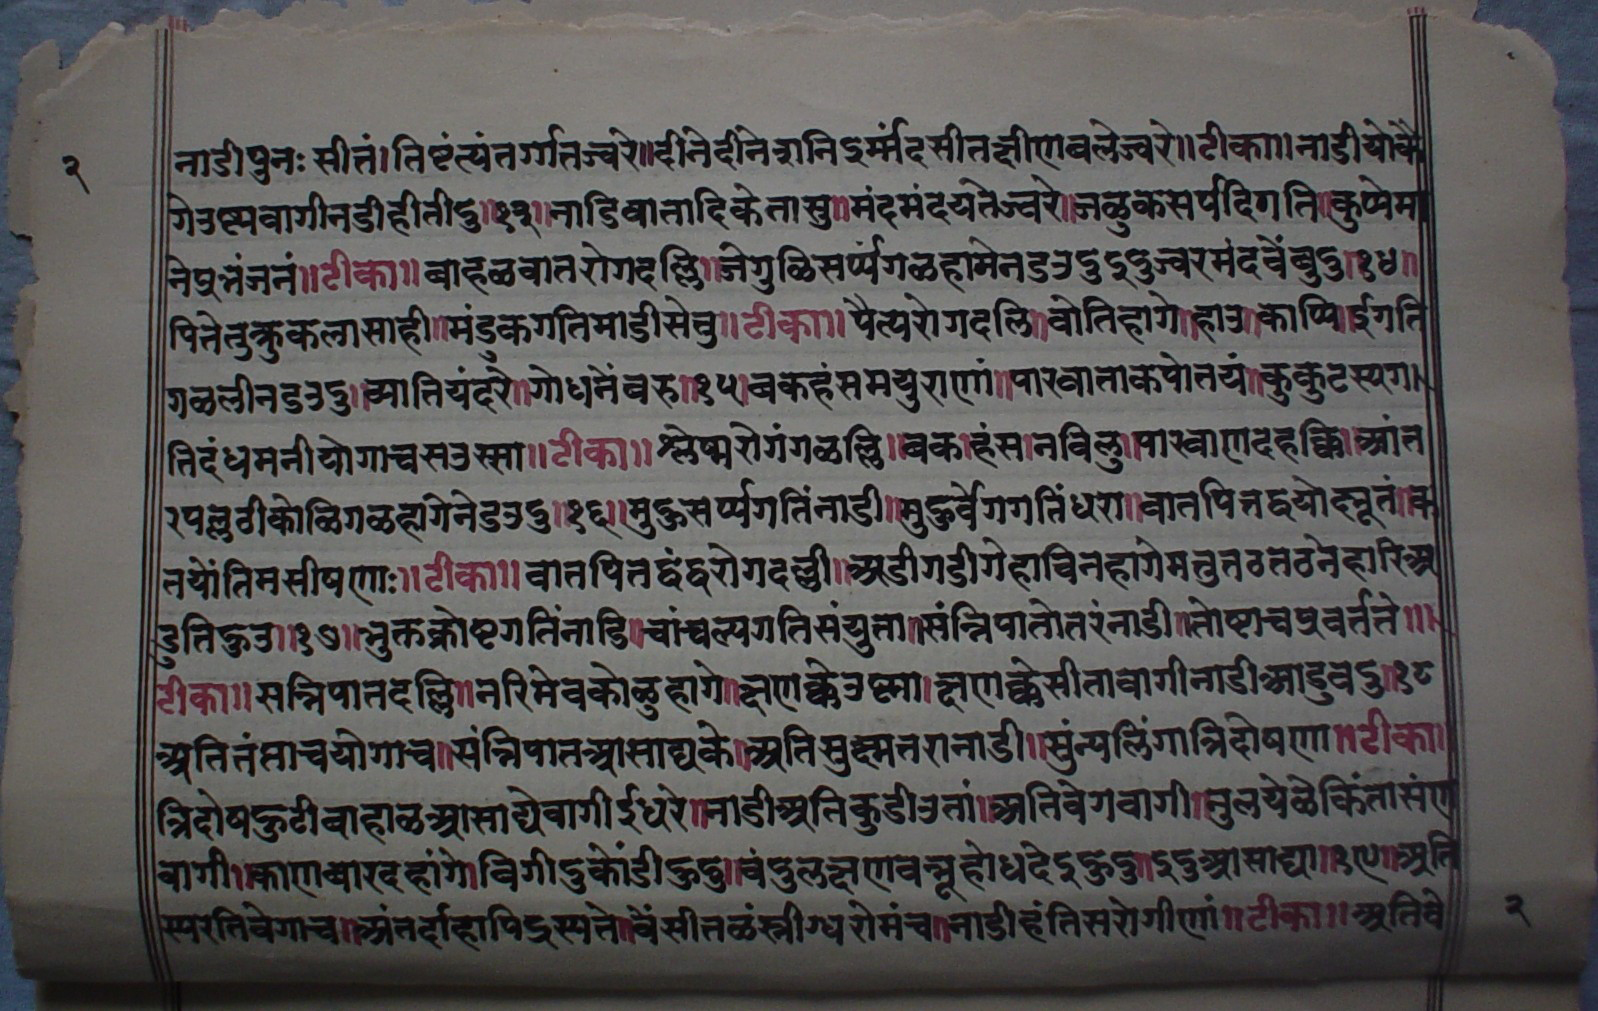 २
नाडीपुनः सीतं।तिष्टंत्यंतर्गातज्वरे॥दीनेदीनेत्रानिऽर्मंदसीतक्षीणबलेज्वरे॥टीका॥नाडीयोकै
गेउष्णवागीनडीहीतीदु॥१३॥नाडिवातादिकेतासु॥मंदमंदयतेज्वरे॥जळुकसर्पदिगति॥कुप्येमा
नेप्रभंजनं॥टीका॥बाहळवातरोगदल्लि॥जेगुळिसर्प्पगळहामेनडउदुइदुज्वरमंदवेंबुदु॥१४॥
पित्तेतुकुकलासाही॥मंडुकगतिमाडीसेवु॥टीका॥पैत्यरोगदलि॥वोतिहागे॥हाउ॥काप्पि॥ईगति
गळलीनडउदु॥ व्यातियंदरे॥गोधनेंबरु॥१५।बकहंसमयुराणां॥पारवाताकपोतयं॥कुकुटस्यग
तिदंधमनीयोगाचसउस्सा॥टीका॥श्लेष्मरोगंगळल्लि॥बक।हंस।नविलु॥पारवाणदहक्कि॥आंत
रपल्लठीकोळिगळहागेनेडउदु॥१६॥मुक्तसर्प्पगतिंनाडी॥मुक्तर्वेगगतिंधरा॥वातपित्तद्वयोद्भूतं॥
तयोंतिमसीषणाः॥टीका॥वातपितद्वंद्वरोगदल्ली॥अडीगडीगेहाविनहागेमत्तुतठतठनेहारिअ
डुतिकुउ॥१७॥भुक्तक्रोष्टगतिंनाडि॥चांच्चल्यगतिसंयुता॥संन्निपातोतरंनाडी॥तोष्टाचप्रवर्त्तते॥
टीका॥सन्निपातदल्लि॥नरिमेवकोळुहागे॥क्षणक्केउष्णा।क्षणक्केसीतावागीनाडीआडुवदु॥१८
अतितंसाचयोगाच॥संन्निपातआसाद्यके॥अतिसुक्ष्मतरानाडी॥सुंन्यलिंगात्रिदोषणा॥टीका॥
त्रिदोषकुटीबाहाळआसाद्येवागीईधरे॥नाडीअतिकुडीउतां॥अतिवेगवागी॥नुलयेळेकिंतासंण
वागी॥काणबारदहांगे।विगीदुकोंडीकुदु॥वंदुलक्षणवन्नूहोधदेइकुदु॥इदुआसाद्या॥१९॥अति
स्परतिवेगाच॥अंतर्दाहापिद्रस्यते॥वेंसीतळंस्त्रीग्धरोमंच॥नाडीहंतिसरोगीणां॥टीका॥अतिवे
२